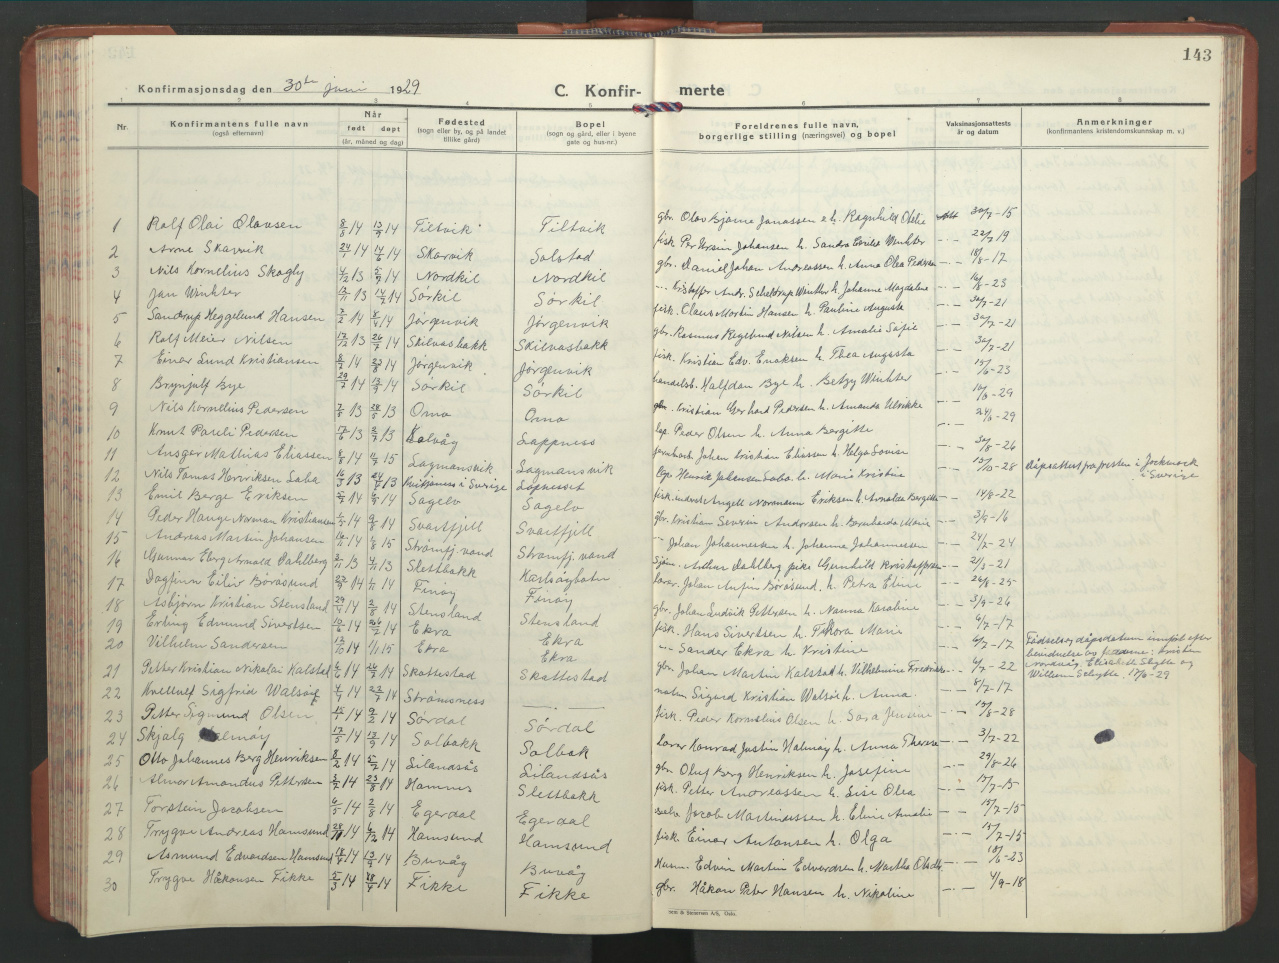 143
Konfirmasjonsdag den 30te juni 1929
C. Konfirmerte
1 2 3 4 5 6 7 8
Nr. Konfirmantens fulle navn (også efternavn) Når født døpt (år, måned og dag) Fødested (sogn eller by, og på landet tillike gård) Bopel (sogn og gård, eller i byene gate og hus-nr.) Foreldrenes fulle navn, borgerlige stilling (næringsvei) og bopel Vaksinasjonsattests år og datum Anmerkninger (konfirmantens kristendomskunnskap m. v.)
1 Rolf Olai Olavsen 8/8 14 13/9 14 Tiltvik Tiltvik gbr. Olav Bjarne Jonassen o h. Ragnhild Otelie Att 30/7-15
2 Arne Skarvik 24/1 14 14/6 14 Skarvik Solstad fisk. Per Ursin Johansen h. Sandra Emilie Winther 22/7 19
3 Nils Kornelius Skogly 4/12 13 5/7 14 Nordkil Nordkil gbr. Daniel Johan Andreassen h. Anna Olea Pedersen 18/8-17
4 Jan Winther 13/11 13 14/2 14 Sørkil Sørkil Kristoffer Andr. Scheldrup Winther h. Johanne Magdalene 16/8-23
5 Sandrup Heggelund Hansen 7/2 14 8/4 14 Jørgenvik Jørgenvik fisk. Olaus Martin Hansen h. Pauline Augusta 30/7-21
6 Rolf Meier Nilsen 17/12 13 26/7 14 Skilvasbakk Skilvasbakk gbr. Rasmus Regelund Nilsen h. Amalie Sofie 30/7-21
7 Einar Lund Kristiansen 8/2 14 23/8 14 Jørgenvik Jørgenvik fisk. Kristian Edv. Eriksen h. Thea Augusta 30/7-21
8 Brynjulf Bye 29/7 14 14 Sørkil Sørkil handelsb. Halfdan Bye h. Betzy Winther 15/6-23
9 Nils Kornelius Pedersen 7/8 13 28/5 13 Orno Orno gbr. Kristian Gerhard Pedersen h. Amanda Ulrikke 16/6-29
10 Knut Pareli Pedersen 17/6 13 2/7 13 Kalvåg Lappness lap. Peder Olsen h. Anna Bergitte 24/6-29
11 Ansgar Mathias Eliassen 8/8 14 11/7 15 Lagmansvik Lagmansvik Johan Kristian Eliassen h. Helga Lovise 30/7-26
12 Nils Tomas Henriksen Laba 14/3 13 13 i Sverige Lapneset lap. Henrik Johansen Laba h. Maria Kristine 13/10-28 Dåpsattest fra presten i Jockmock i Sverige
13 Emil Berge Eriksen 14 14 Sagelv Sagelv fisk. Angell Normann Eriksen h. Amalia Bergitte 14/8-22
14 Peder Hauge Norman Kristiansen 14 9/8 14 Svartfjell Svartfjell gbr. Kristian Severin Andersen h. Bernharda Marie 3/9-16
15 Andreas Martin Johansen 14 1/8 15 Strømfj. vand Strømfj. vand Johan Johannessen h. Johanna Johannessen 24/7-24
16 Gunnar Eberg Arnold Dahlberg 2/11 13 4/11 13 Slettbakk Karlsøyholm Sjøm. Arthur Dahlberg pike Gunhild Kristoffersen 21/8-21
17 Dagfinn Eilif Borøsund 23/9 14 1/11 14 Finøy Finøy Lærer Johan Anfin Borøsund h. Petra Eline 26/8-25
18 Asbjørn Kristian Stensland 29/4 14 2/8 14 Stensland Stensland gbr. Johan Ludvik Pettersen h. Nanna Karoline 3/9-26
19 Erling Edmund Sivertsen 10/6 14 26/7 14 Ekra Ekra fisk. Hans Sivertsen h. Thora Marie 6/7-17
20 Vilhelm Sandersen 13/10 14 1/11 15 Ekra Ekra Sander Ekra h. Kristine 6/7-17 Fødsels og dåpsdatum innført efter bevidnelse av fadderne: Kristen Nordvåg, Elisabeth Skytte og Willum Schytte. 17/6-29
21 Petter Kristian Nikolai Kalstad 6/6 14 26/7 14 Skattestad Skattestad gbr. Johan Martin Kalstad h. Vilhelmine Fredrikke 6/7-22
22 Sigfrid Walsøe 4/7 14 22/7 14 Strømsness Sigurd Kristian Walsøe h. Anna. 8/7-17
23 Petter Sigmund Olsen 15/1 14 9/2 14 Sørdal Sørdal fisk. Peder Kornelius Olsen h. Sara Jensine 15/8-28
24 Skjalg Halmøy 17/5 14 13/9 14 Solbakk Solbak Lærer Konrad Justin Halmøy h. Anna Therese 3/7-22
25 Otto Johannes Berg Henriksen 8/2 14 5/7 14 Silandsås Silandsås gbr. Oluf Berg Henriksen h. Josefine 29/8-26
26 Almar Amandus Pettersen 2/2 14 23/8 14 Hamnes Slettbakk fisk. Petter Andreassen h. Lise Olea 15/7-15
27 Torstein Jacobsen 6/5 14 2/8 14 Egerdal Egerdal Jacob Martinussen h. Eline Amalie 15/7-15
28 Trygve Andreas Hamsund 28/10 14 6/12 14 Hamsund Hamsund fisk. Einar Antonsen h. Olga 15/7-15
29 Asmund Edvardsen Hamsund 18/4 14 13/9 14 Buvåg Buvåg Edvin Martin Edvardsen h. Martha 18/6-23
30 Trygve Håkonsen Fikke 5/3 14 14 Fikke Fikke gbr. Håkon Peter Hansen h. Nikoline 4/9-18